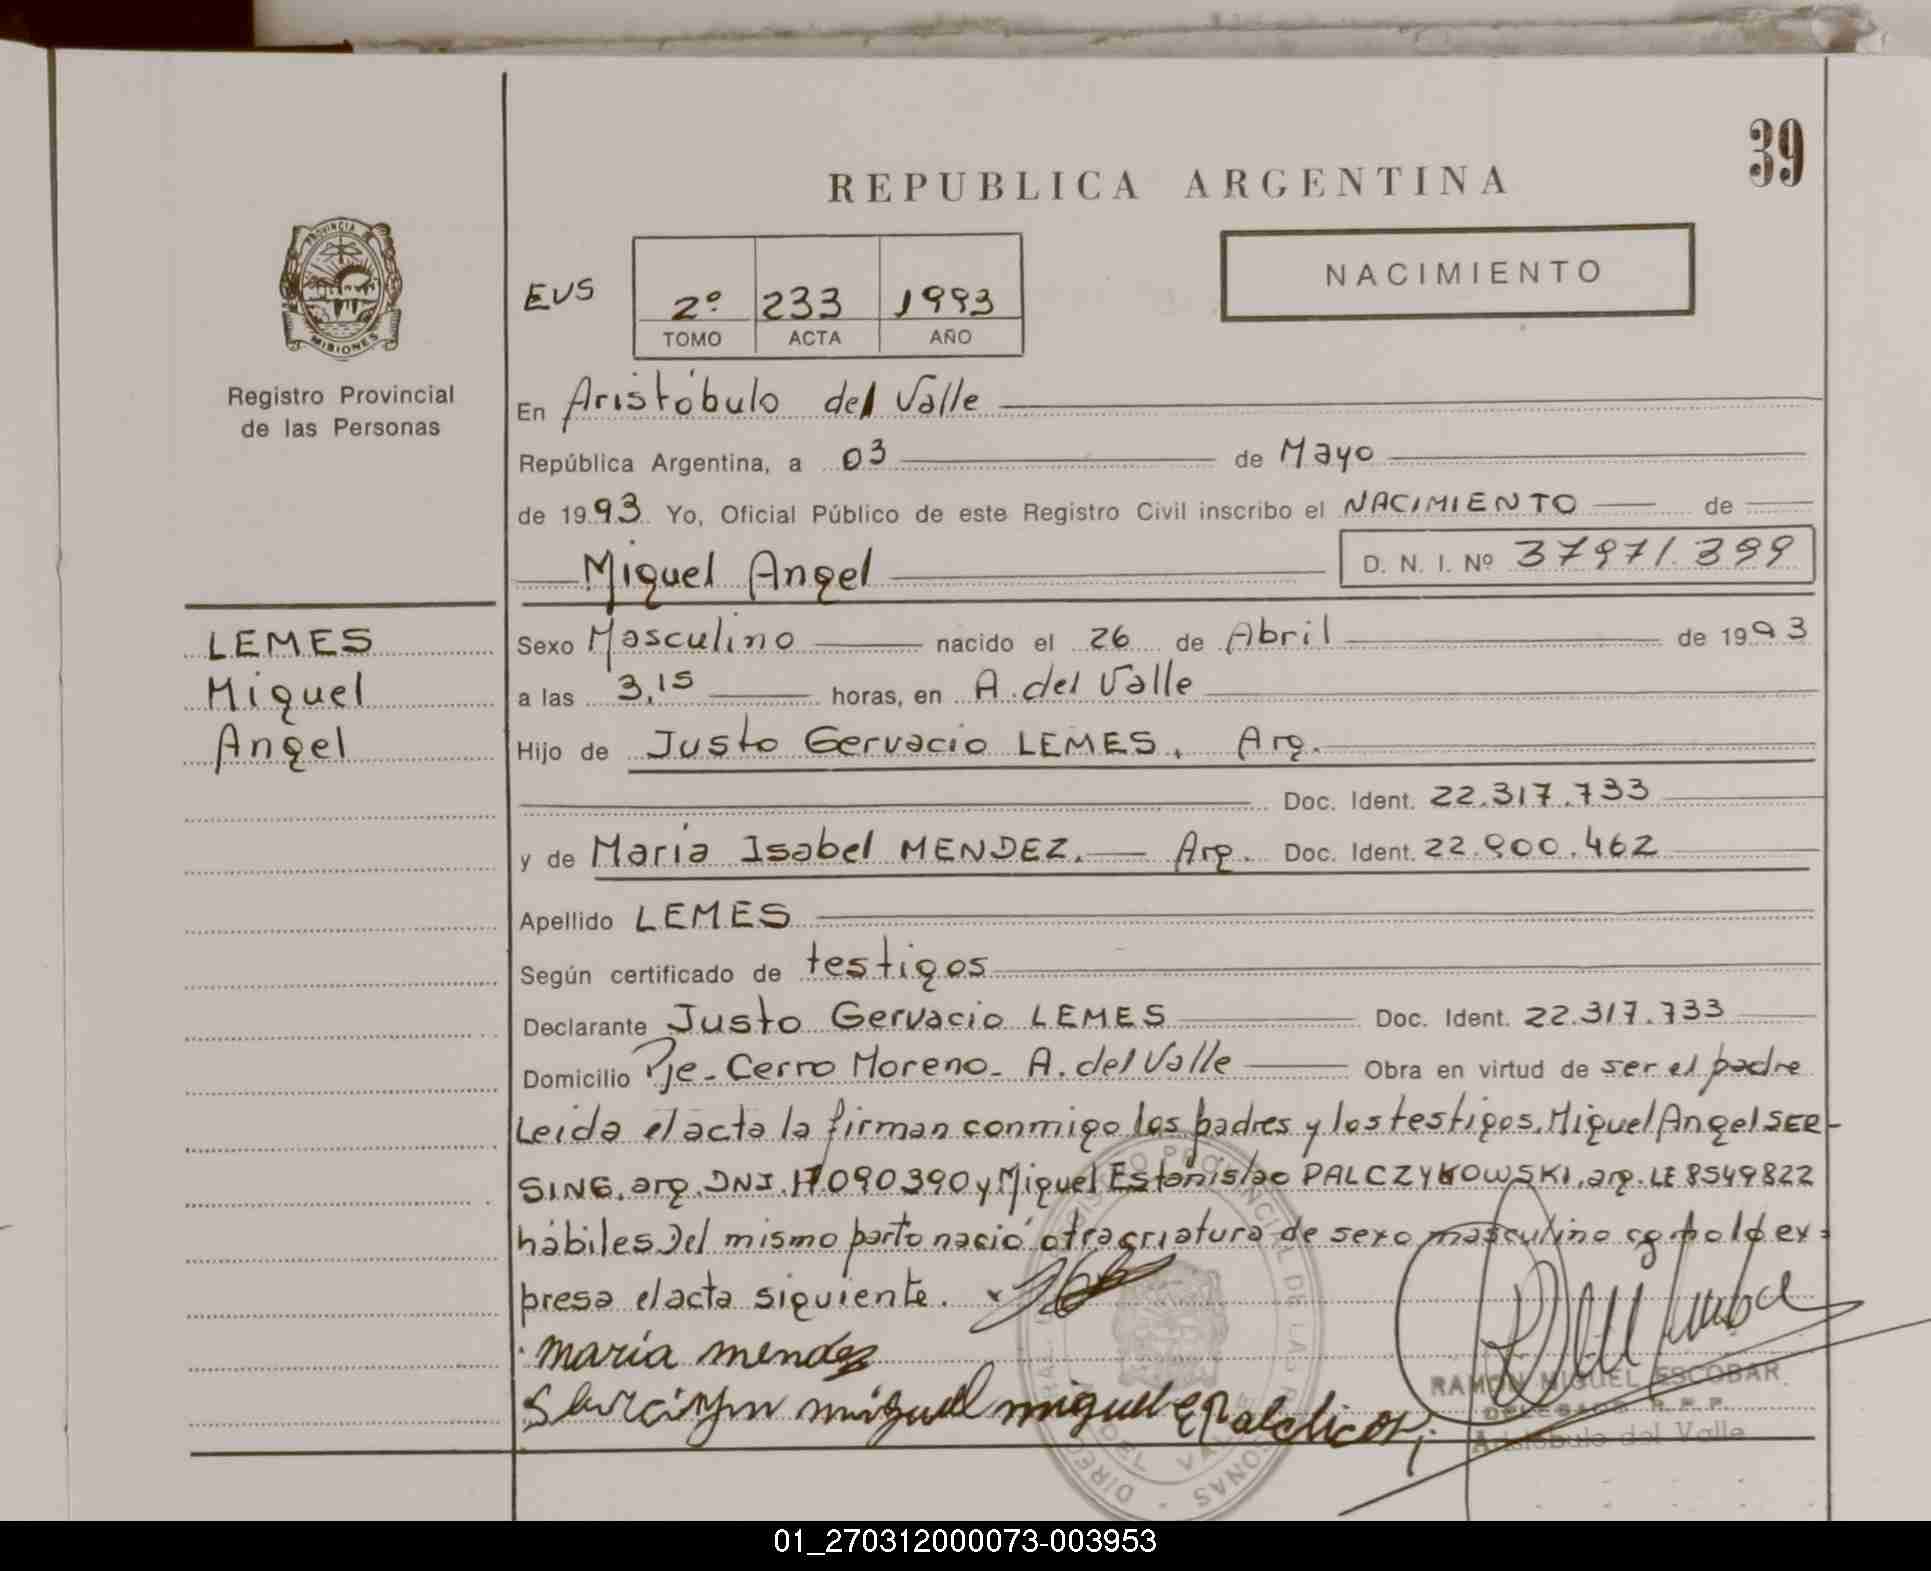 39
REPUBLICA ARGENTINA
PROVINCIA
MISIONES
Registro Provincial
de las Personas
NACIMIENTO
EVS
2º 233 1993
TOMO ACTA AÑO
En Aristóbulo del Valle
República Argentina, a 03 de Mayo
de 1993 Yo, Oficial Público de este Registro Civil inscribo el NACIMIENTO de
Miguel Angel D. N. I. Nº 37971.399
LEMES
Miguel
Angel
Sexo Masculino nacido el 26 de Abril de 1993
a las 3,15 horas, en A. del Valle
Hijo de Justo Gervacio LEMES, Arg.
Doc. Ident. 22.317.733
y de Maria Isabel MENDEZ. Arg. Doc. Ident. 22.900.462
Apellido LEMES
Según certificado de testigos
Declarante Justo Gervacio LEMES Doc. Ident. 22.317.733
Domicilio Pje- Cerro Moreno- A. del Valle Obra en virtud de ser el padre
Leida el acta la firman conmigo los padres y los testigos, Miguel Angel SER-
SING, arg. DNI. 17090390 y Miguel Estanislao PALCZYKOWSKI, arg. LE 8549822
hábiles Del mismo parto nació otra criatura de sexo masculino como lo ex=
presa el acta siguiente.
maria mendez
miguel miguel E
RAMON MIGUEL ESCOBAR
DELEGADO R.P.P.
Aristóbulo del Valle
01_270312000073-003953